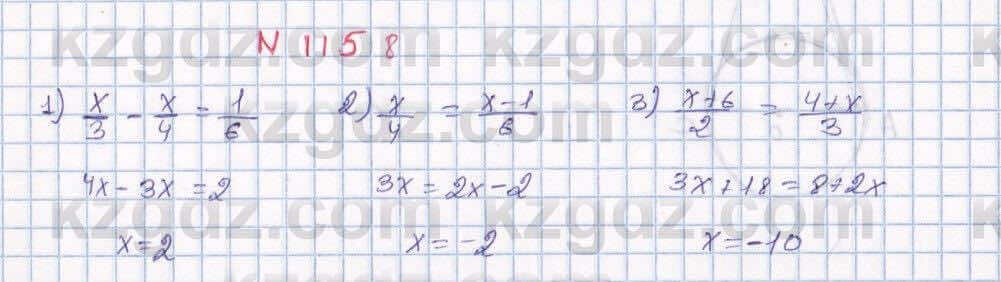 kzgdz.com kzgdz.com
N 1158
1) x/3 - x/4 = 1/6 2) x/4 = x-1/6 3) x+6/2 = 4+x/3
kzgdz.com kzgdz.com
4x - 3x = 2 3x = 2x - 2 3x + 18 = 8 + 2x
kzgdz.com kzgdz.com
x = 2 x = -2 x = -10